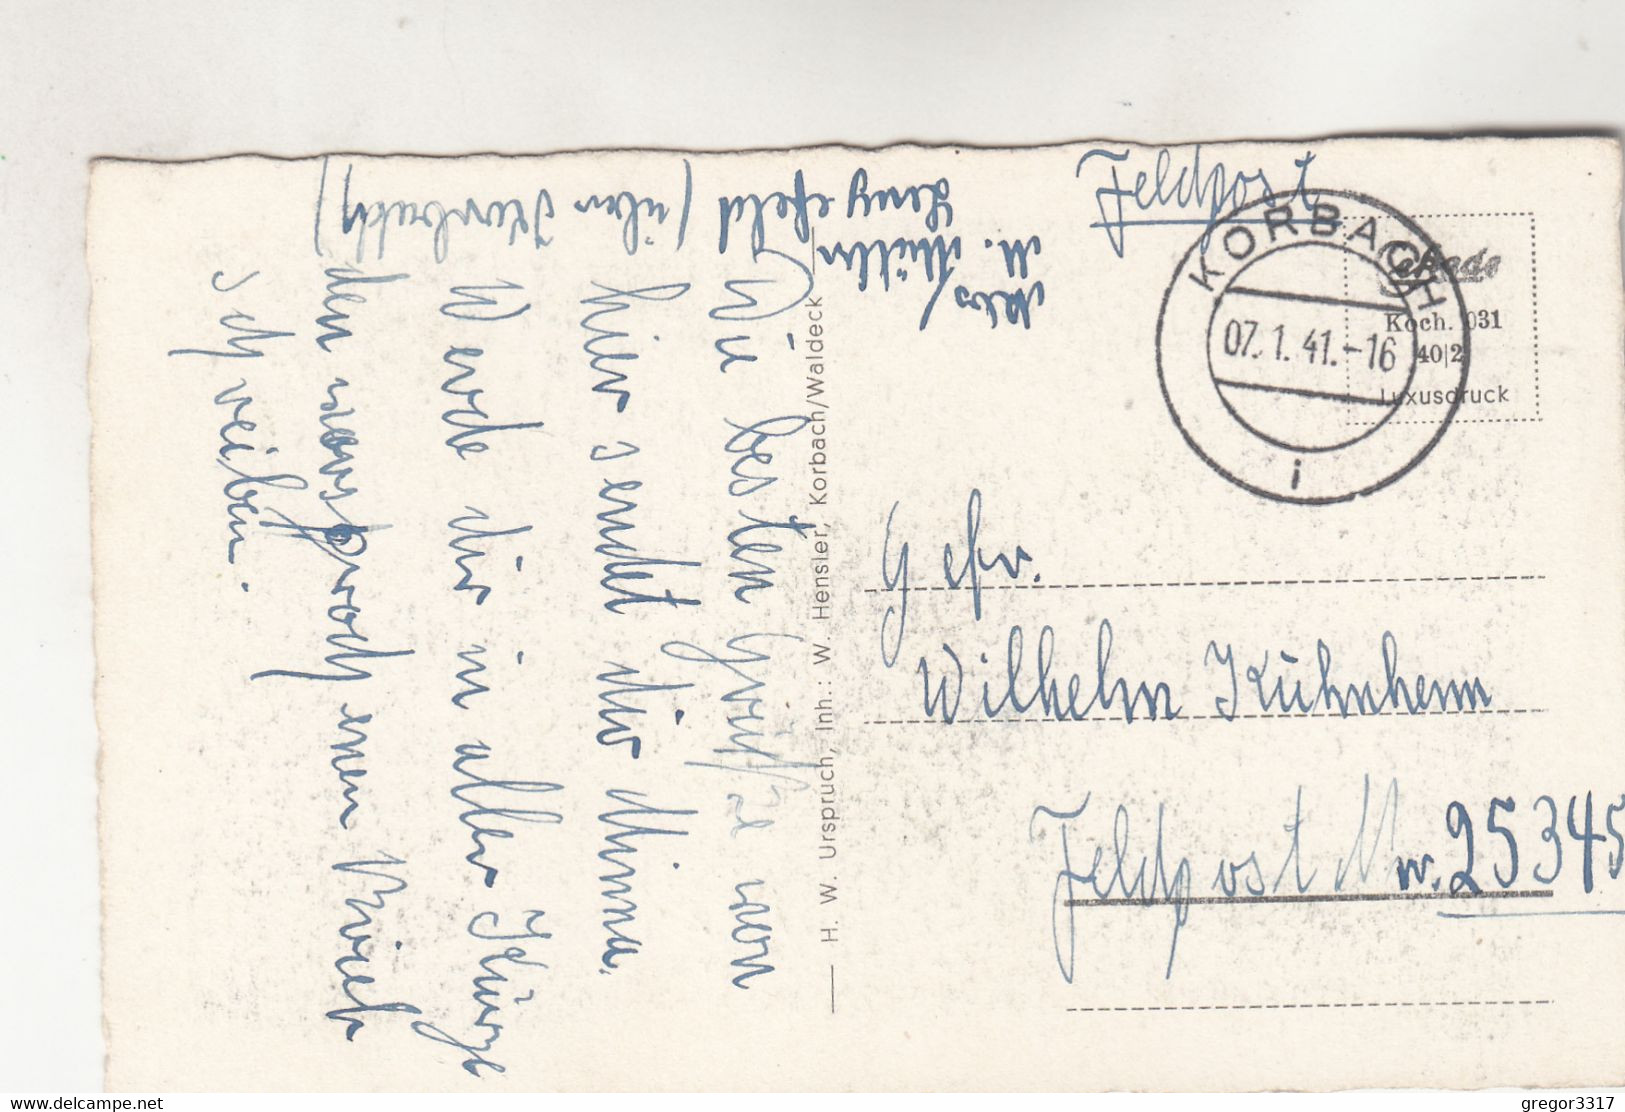 Feldpost
KORBACH
07.1.41.-16
i
Koch. 031
40|2
Luxusdruck
M. Müller
Lengefeld (über Korbach)
Die besten Grüsse von
hier sendet dir Minna.
Werde dir in aller Kürze
den noch einen Brief
schreiben.
H. W. Urspruch, Inh.: W. Hensler, Korbach/Waldeck
Gefr.
Wilhelm
Feldpost Nr. 25345
https://www.delcampe.net
gregor3317